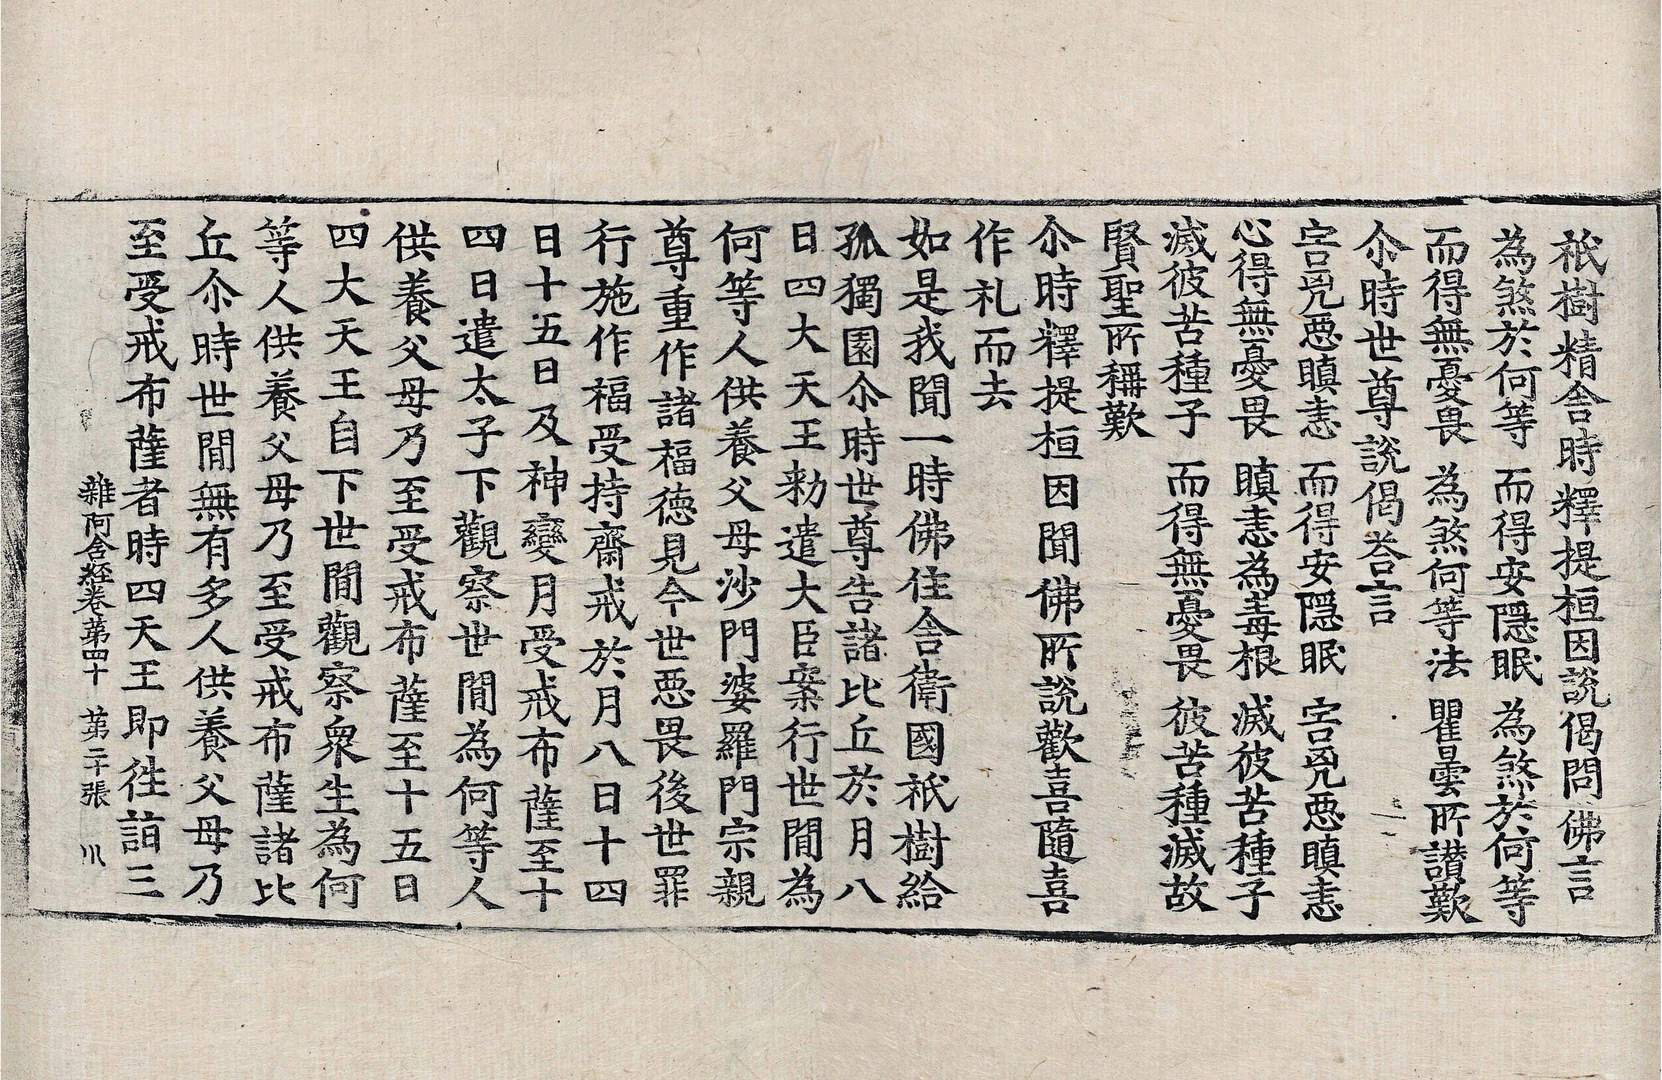 祇樹精舍時釋提桓因說偈問佛言
為煞於何等　而得安隱眠　為煞於何等
而得無憂畏　為煞何等法　瞿曇所讃歎
尒時世尊說偈荅言
害兇惡瞋恚　而得安隱眠　害兇惡瞋恚
心得無憂畏　瞋恚為毒根　滅彼苦種子
滅彼苦種子　而得無憂畏　彼苦種滅故
賢聖所稱歎
尒時釋提桓因聞佛所說歡喜隨喜
作礼而去
如是我聞一時佛住舍衛國祇樹給
孤獨園尒時世尊告諸比丘於月八
日四大天王勑遣大臣案行世間為
何等人供養父母沙門婆羅門宗親
尊重作諸福德見今世惡畏後世罪
行施作福受持齋戒於月八日十四
日十五日及神變月受戒布薩至十
四日遣太子下觀察世間為何等人
供養父母乃至受戒布薩至十五日
四大天王自下世間觀察衆生為何
等人供養父母乃至受戒布薩諸比
丘尒時世間無有多人供養父母乃
至受戒布薩者時四天王即徃詣三
雜阿含経卷第四十　第二十張　川